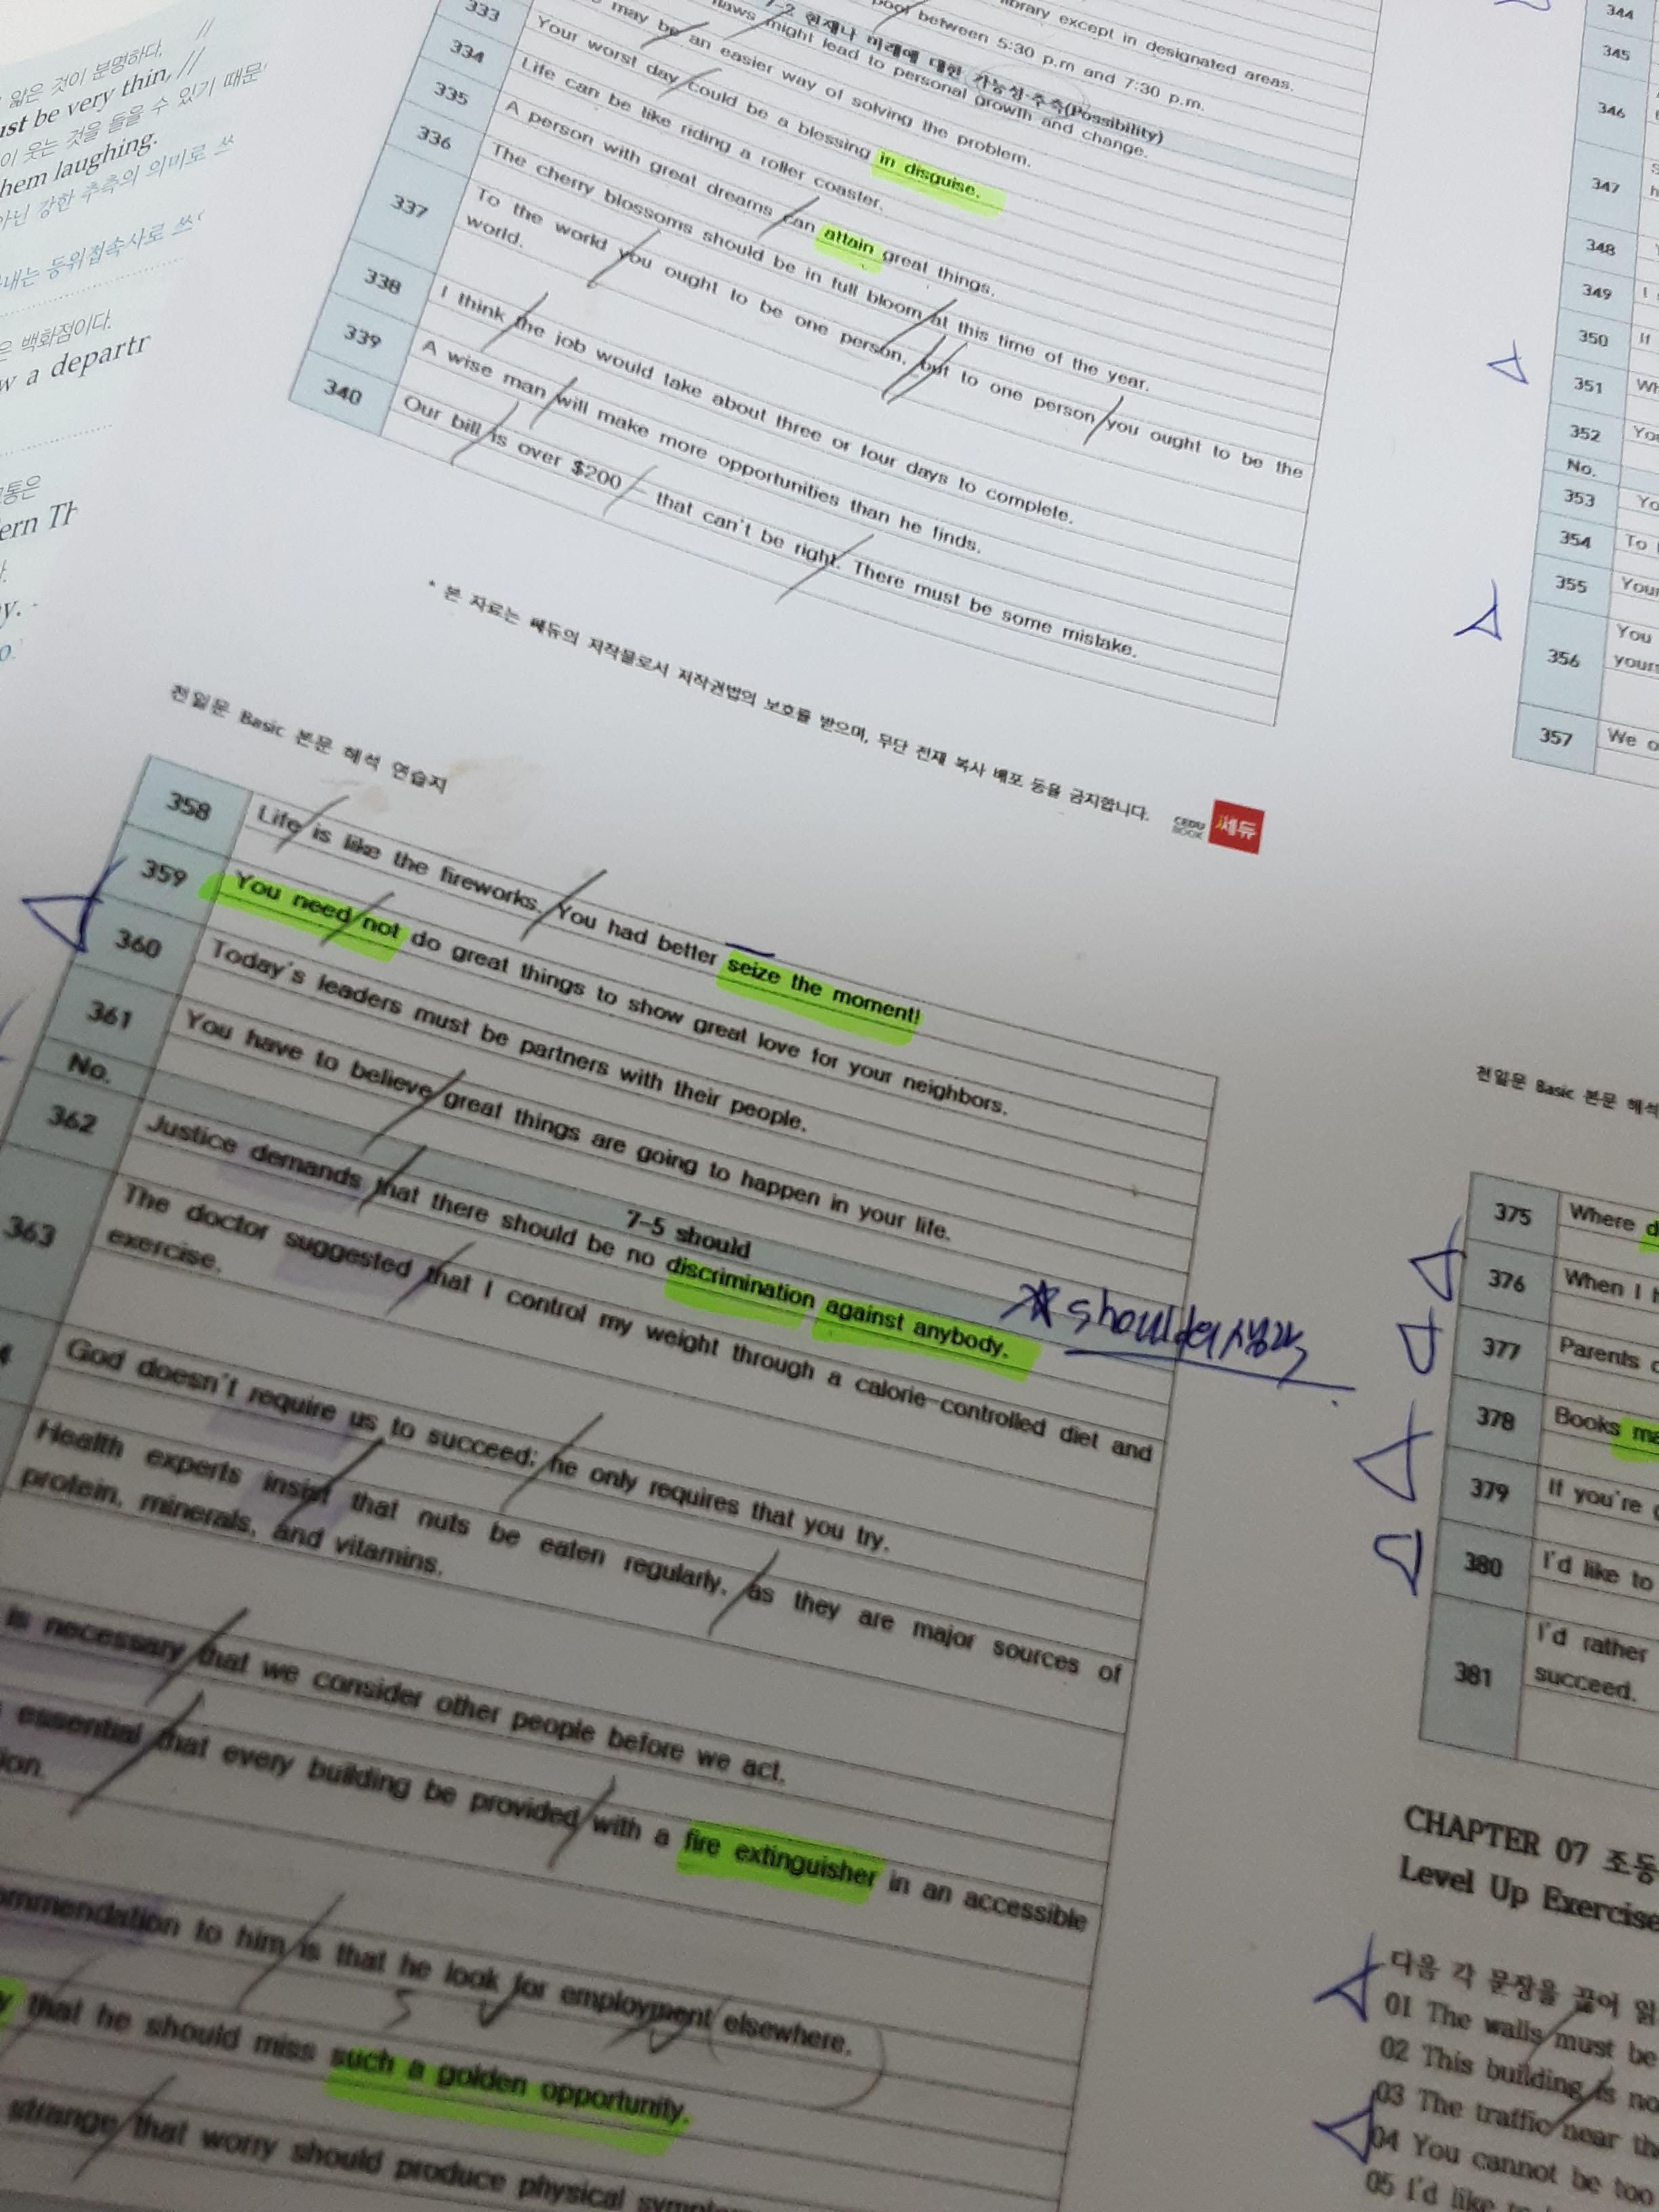 얇은 것이 분명하다.
be very thin,
웃는 것을 들을 수 있기 때문
laughing.
강한 추측의 의미로
등위접속사로
백화점이다.
a
library except in designated areas.
pool between 5:30 p.m and 7:30 p.m.
7-2 현재나 미래에 대한 가능성·추측(Possibility)
might lead to personal growth and change.
333 may be an easier way of solving the problem.
334 Your worst day could be a blessing in disguise.
335 Life can be like riding a roller coaster.
336 A person with great dreams can attain great things.
The cherry blossoms should be in full bloom at this time of the year.
337 To the world you ought to be one person, but to one person you ought to be the
world.
338 I think the job would take about three or four days to complete.
339 A wise man will make more opportunities than he finds.
340 Our bill is over $200 - that can't be right. There must be some mistake.
* 본 자료는 쎄듀의 저작물로서 저작권법의 보호를 받으며, 무단 전재 복사 배포 등을 금지합니다.
CEDU
BOOK
쎄듀
344
345
346
347
348
349 I
350 If
351
352
No.
353
354 To
355
356 You
357 We
천일문 Basic 본문 해석 연습지
358 Life is like the fireworks. You had better seize the moment!
359 You need not do great things to show great love for your neighbors.
360 Today's leaders must be partners with their people.
361 You have to believe great things are going to happen in your life.
No. 7-5 should
362 Justice demands that there should be no discrimination against anybody.
363 The doctor suggested that I control my weight through a calorie-controlled diet and
exercise.
* should 생략
God doesn't require us to succeed; he only requires that you try.
Health experts insist that nuts be eaten regularly, as they are major sources of
protein, minerals, and vitamins.
is necessary that we consider other people before we act.
essential that every building be provided with a fire extinguisher in an accessible
to him is that he look for employment elsewhere.
S V
that he should miss such a golden opportunity.
strange that worry should produce physical
천일문 Basic 본문 해석
375 Where
376 When I
377 Parents
378 Books
379 If you're
380 I'd like to
381 I'd rather
succeed.
CHAPTER 07
Level Up Exercise
다음 각 문장을 끊어
01 The walls must be
02 This building is
03 The traffic near
04 You cannot be too
05 I'd like